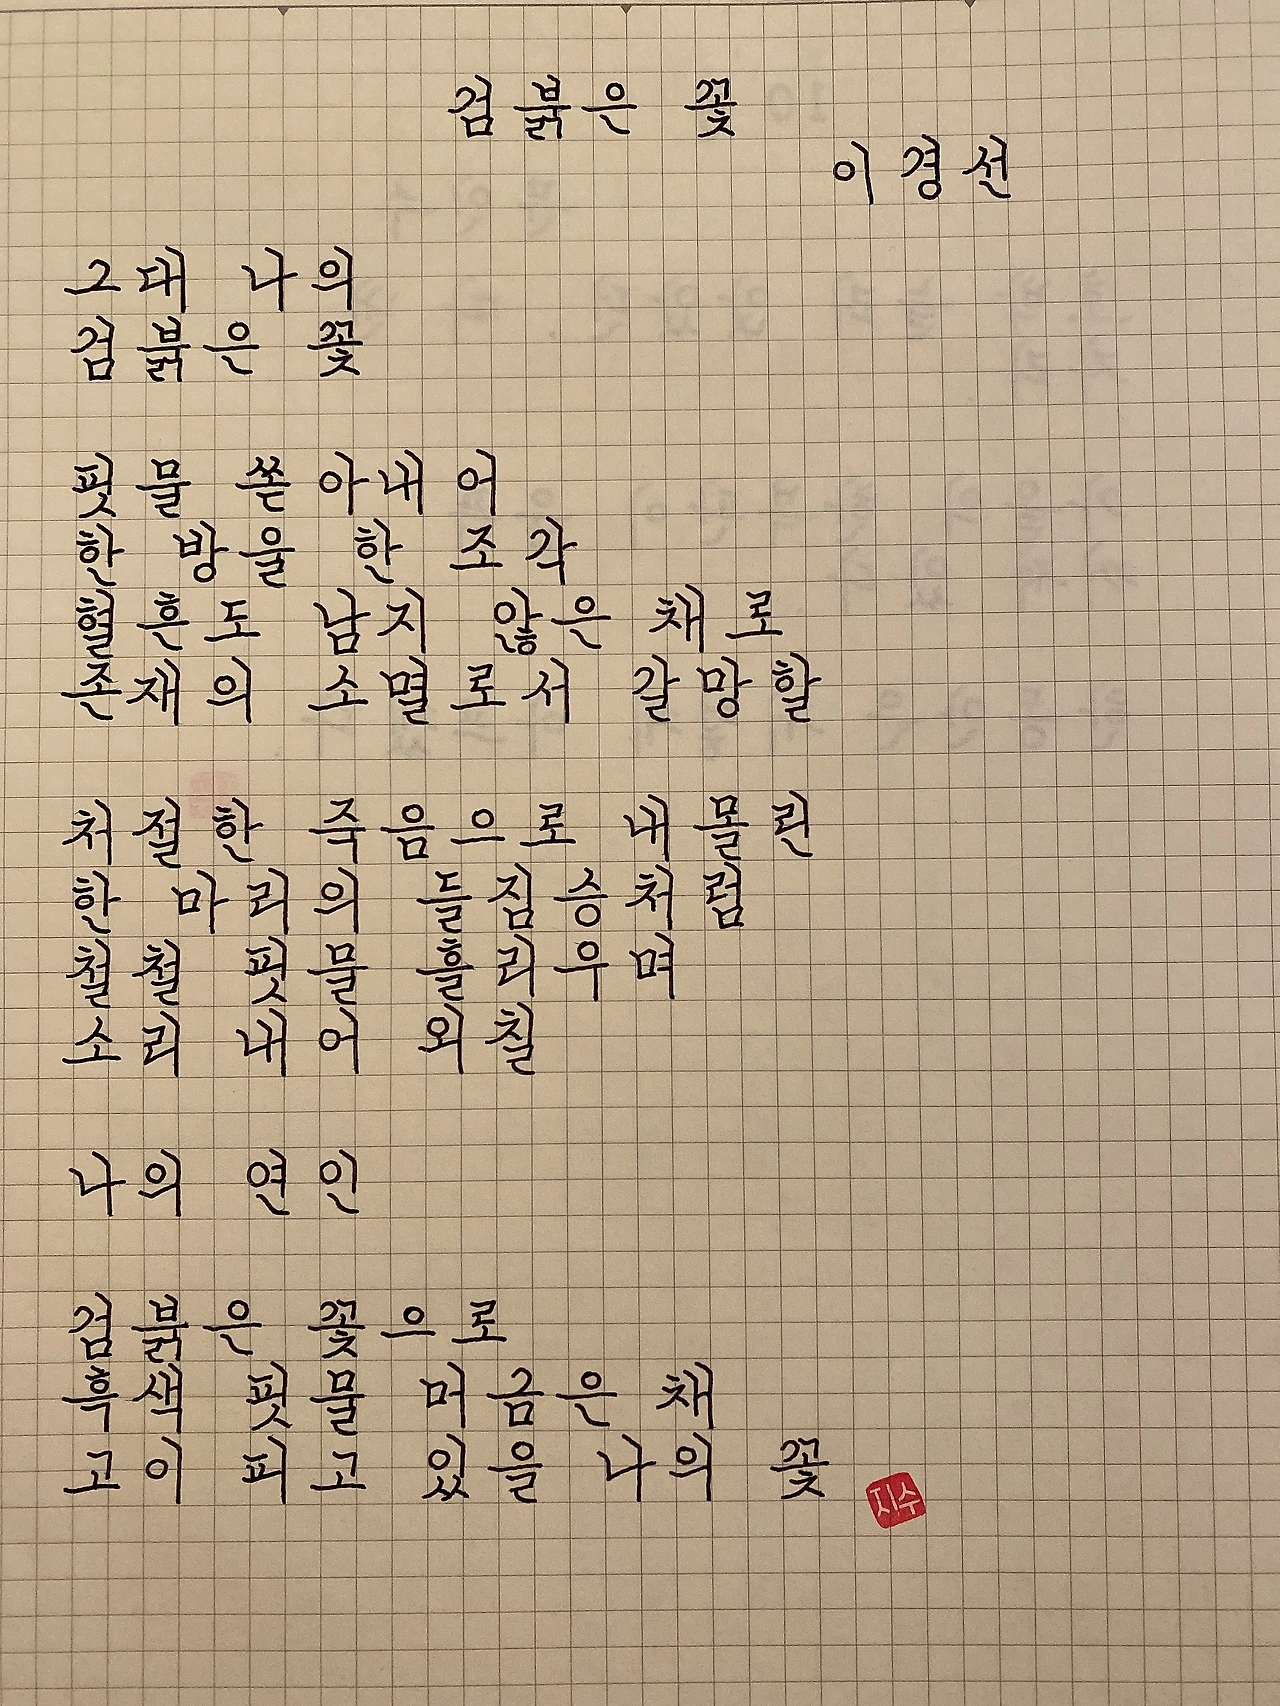 검붉은 꽃
이경선
그대 나의
검붉은 꽃
핏물 쏟아내어
한 방울 한 조각
혈흔도 남지 않은 채로
존재의 소멸로서 갈망할
처절한 죽음으로 내몰린
한 마리의 들짐승처럼
철철 핏물 흘리우며
소리 내어 외칠
나의 연인
검붉은 꽃으로
흑색 핏물 머금은 채
고이 피고 있을 나의 꽃
지수